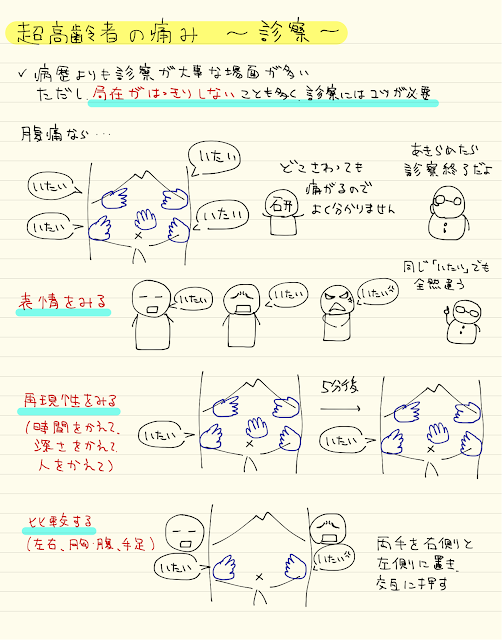 超高齢者の痛み ～診察～
✓ 病歴よりも診察が大事な場面が多い
ただし、局在がはっきりしないことも多く、診察にはコツが必要
腹痛なら…
いたい
いたい
いたい
いたい
どこさわっても
痛がるので
よく分かりません
研
あきらめたら
診察終了だよ
表情をみる
いたい
いたい
いたい゛
同じ「いたい」でも
全然違う
再現性をみる
(時間をかえて、
深さをかえて、
人をかえて)
いたい
5分後
いたい
比較する
(左右、胸・腹、手足)
いたい
いたい゛
両手を右側と
左側に置き、
交互に押す